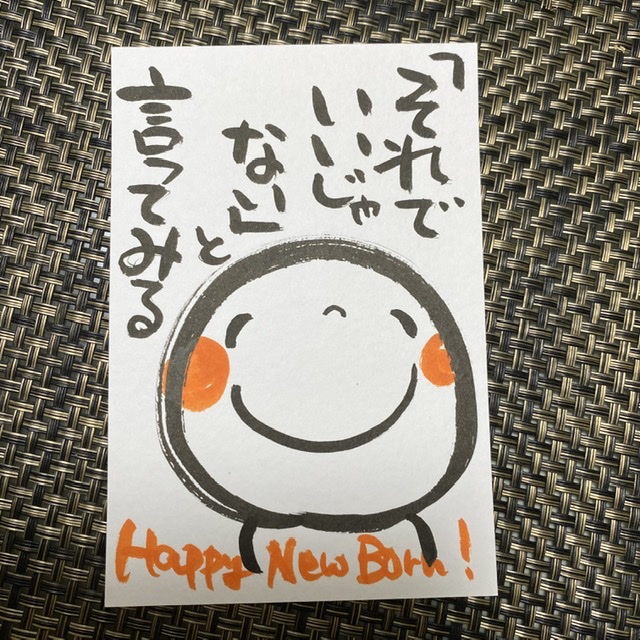 「それで
いいじゃ
ない」と
言ってみる
Happy New Born!